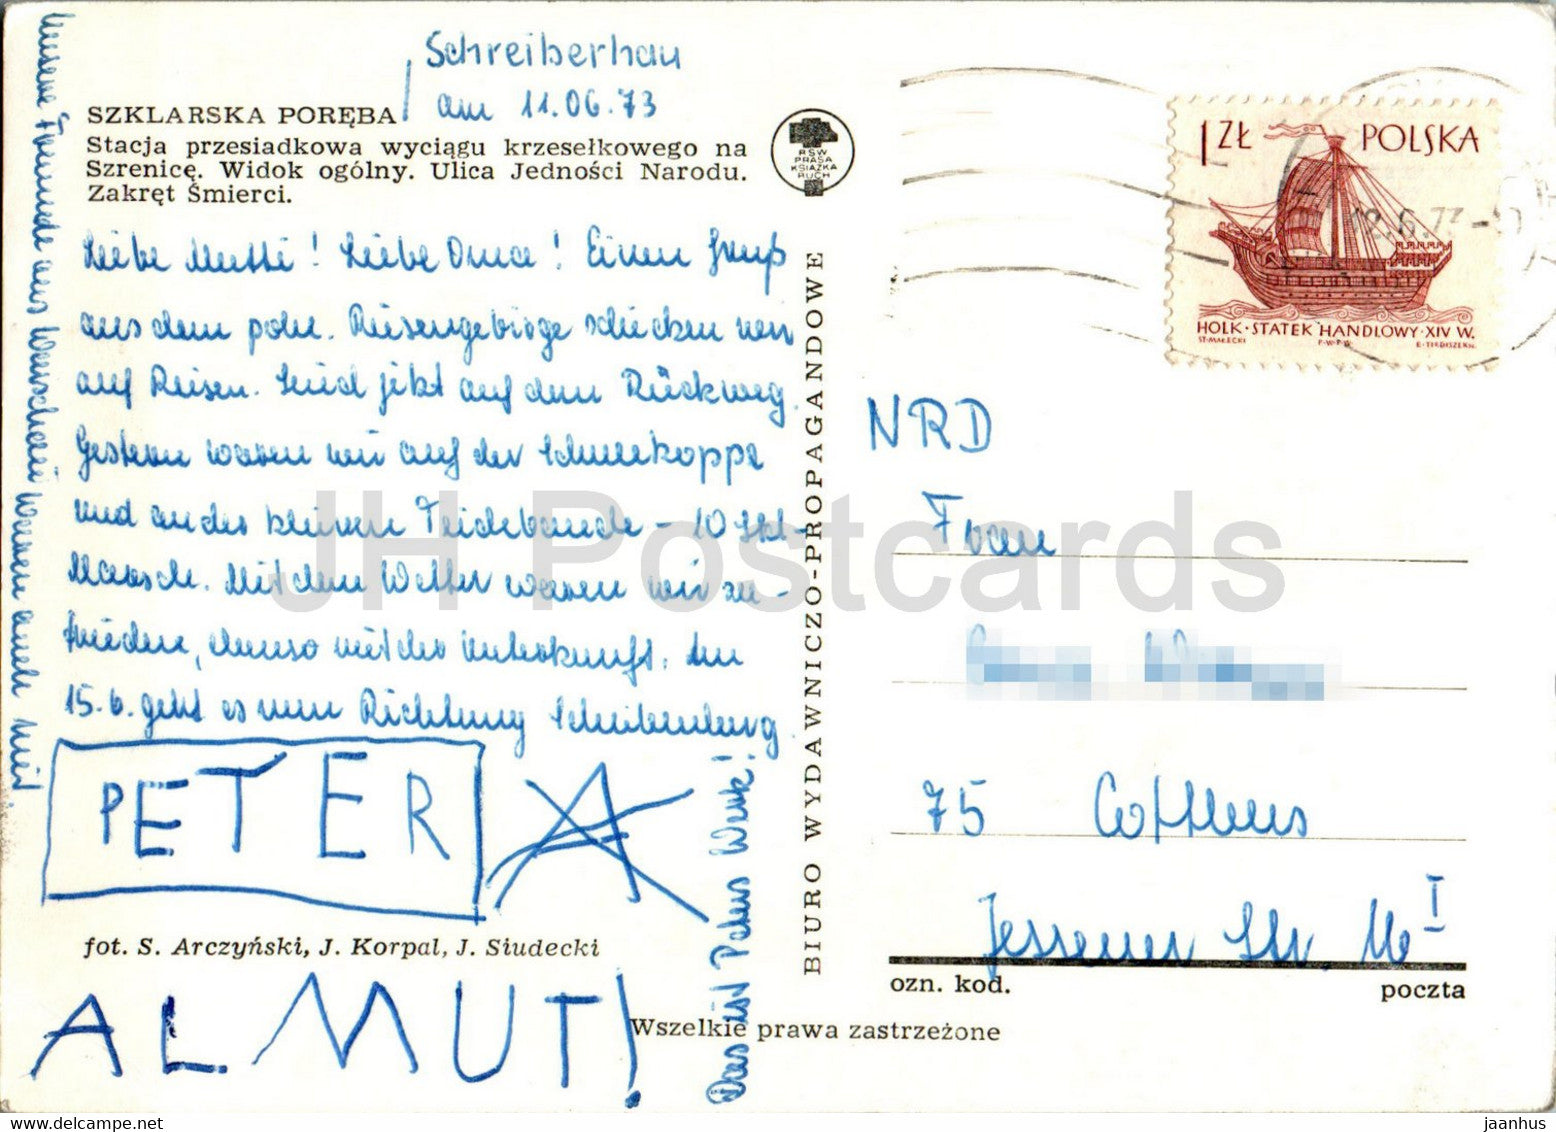 Schreiberhau
am 11.06.73
SZKLARSKA PORĘBA
Stacja przesiadkowa wyciągu krzesełkowego na
Szrenicę. Widok ogólny. Ulica Jedności Narodu.
Zakręt Śmierci.
RSW
PRASA
KSIĄŻKA
RUCH
Liebe Mutti! Liebe Oma! Einen Gruß
aus dem poln. Riesengebirge schicken wir
auf Reisen. Sind jetzt auf dem Rückweg.
Gestern waren wir auf der Schneekoppe
und an der kleinen Teichbaude - 10 Std-
Marsch. Mit dem Wetter waren wir zu-
frieden, ebenso mit der Unterkunft. Am
15.6. geht es nun Richtung
PETER
ALMUT!
Das ist Peters Werk!
Unsere Freunde aus Warschau waren auch mit.
fot. S. Arczyński, J. Korpal, J. Siudecki
Wszelkie prawa zastrzeżone
BIURO WYDAWNICZO-PROPAGANDOWE
1 ZŁ POLSKA
HOLK·STATEK HANDLOWY·XIV W.
ST. MAŁECKI P.W.P.W. E. TIRDISZEK
12.6.73
NRD
Frau
75 Cottbus
Jessener Str.
ozn. kod.
poczta
JH Postcards
delcampe.net
jaanhus